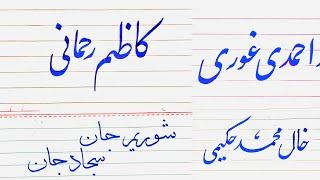 احمدی غوری
کاظم رحمانی
جان
سجاد جان
خال محمد حکیمی